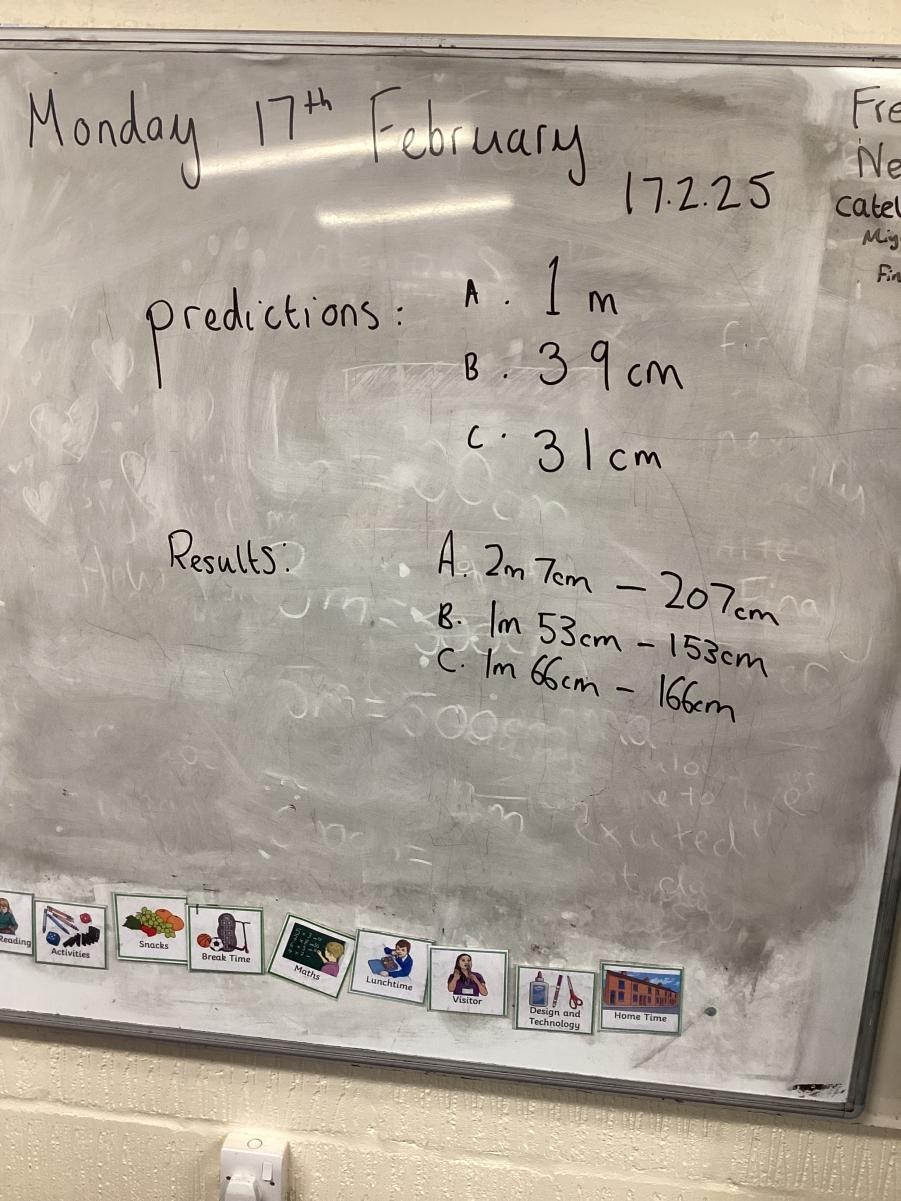 Monday 17th February
17.2.25
Fre
Ne
catel
Miy
Fin
predictions: A. 1m
B. 39cm
C. 31cm
Results: A. 2m 7cm – 207cm
B. 1m 53cm – 153cm
C. 1m 66cm – 166cm
3m =
3m = 300cm
excited
Reading
Activities
Snacks
Break Time
Maths
Lunchtime
Visitor
Design and
Technology
Home Time